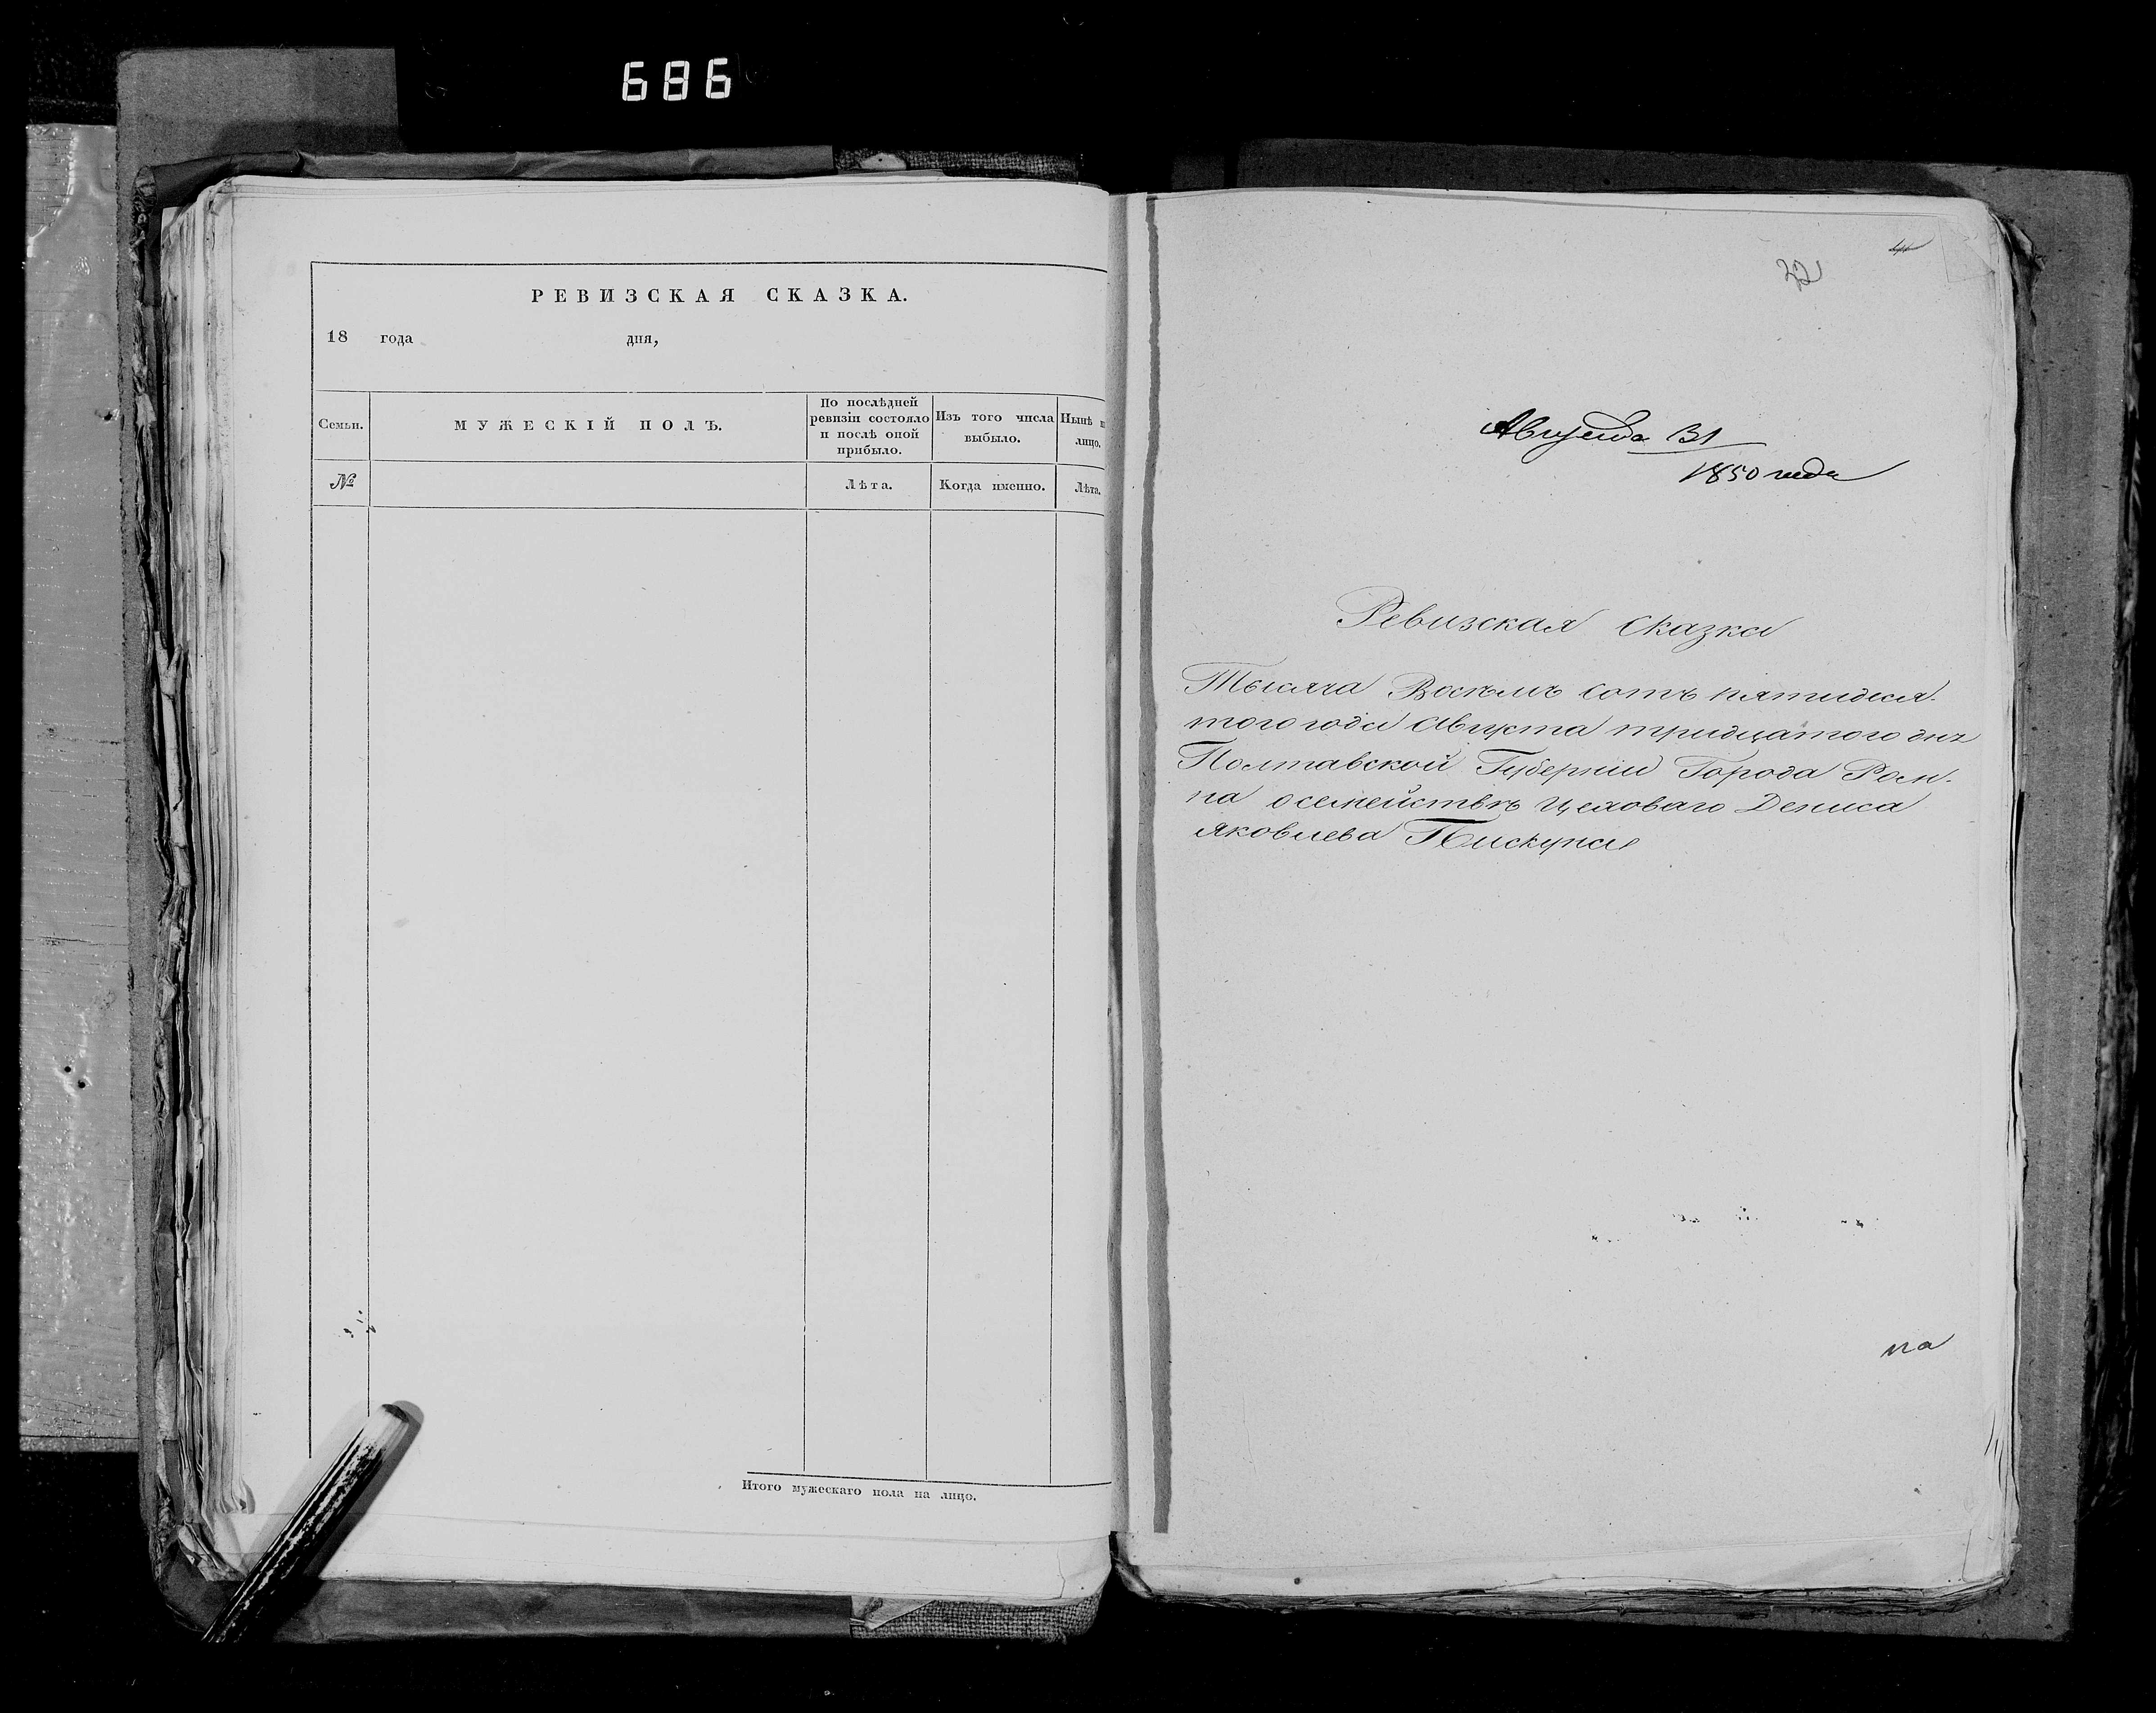 686
РЕВИЗСКАЯ СКАЗКА.
18 года дня,
Семьи.
МУЖЕСКІЙ ПОЛЪ.
По послѣдней
ревизіи состояло
и послѣ оной
прибыло.
Изъ того числа
выбыло.
Нынѣ н
лицо.
№
Лѣта.
Когда именно.
Лѣта.
Итого мужескаго пола на лицо.
32
Августа 31
1850 года
Ревизская Сказка
Тысяча Восѣмъ сотъ пятидеся-
того года Августа тридцатого дня
Полтавской Губерніи Города Ром-
на о семействѣ Цеховаго Дениса
Яковлева Пискуна
на